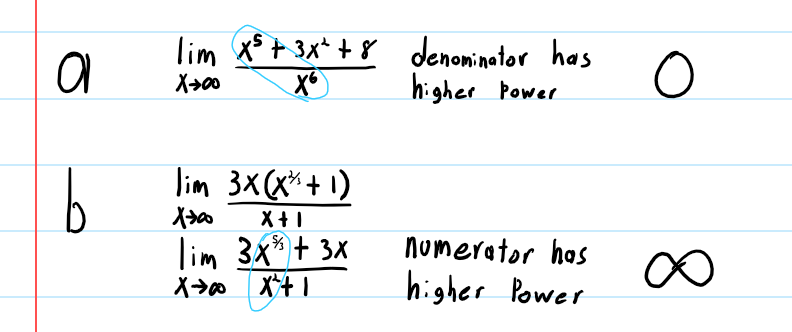 a lim x→∞ (x⁵ + 3x² + 8)/x⁶ denominator has higher power 0
b lim x→∞ 3x(x^(2/3) + 1)/(x + 1)
lim x→∞ (3x^(5/3) + 3x)/(x² + 1) numerator has higher power ∞